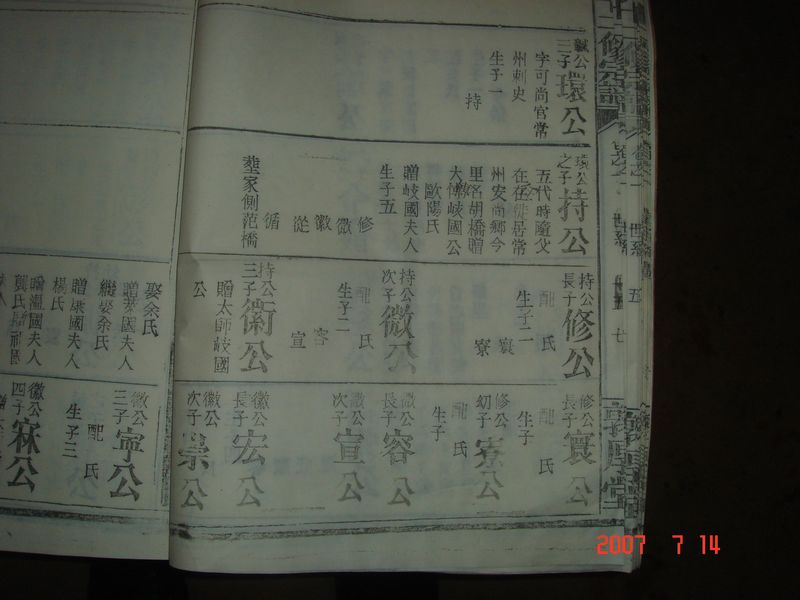 誠公
三子
環公
字可尚官常
州刺史
生子一
持
環公
之子
持公
五代時隨父
在任徙居常
州安尚鄉今
里名胡橋贈
太傅岐國公
歐陽氏
贈岐國夫人
生子五
修
微
徽
從
循
塟家側范橋
持公
長子
修公
配 氏
生子二
寰
寮
持公
次子
微公
配 氏
生子二
容
宣
持公
三子
贈太師岐國
公
娶余氏
國夫人
繼娶余氏
贈康國夫人
楊氏
贈溫國夫人
龔氏
修公
長子
寰公
配 氏
生子
修公
幼子
寮公
配 氏
生子
微公
長子
容公
微公
次子
宣公
徽公
長子
宏公
徽公
次子
崇公
徽公
三子
寧公
配 氏
生子三
徽公
四子
寀公
世系
五
七
2007 7 14